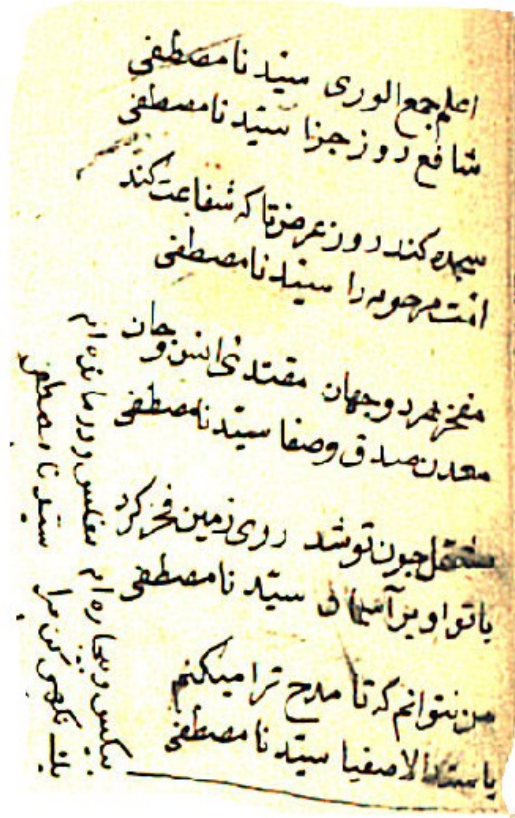 اعلم جمع الوری سیدنا مصطفی
شافع روز جزا سیدنا مصطفی
سجده کند روز عرض تا که شفاعت کند
امت مرحومه را سیدنا مصطفی
مفخر هر دو جهان مقتدی انس و جان
معدن صدق و صفا سیدنا مصطفی
چون تو شد روی زمین فخر کرد
با تو او بر آسمان سیدنا مصطفی
من نتوانم که تا مدح ترا میکنم
یا سید الاصفیا سیدنا مصطفی
بیکس و بیچاره ام مفلس و درمانده ام
یک نگهی کن مرا سیدنا مصطفی